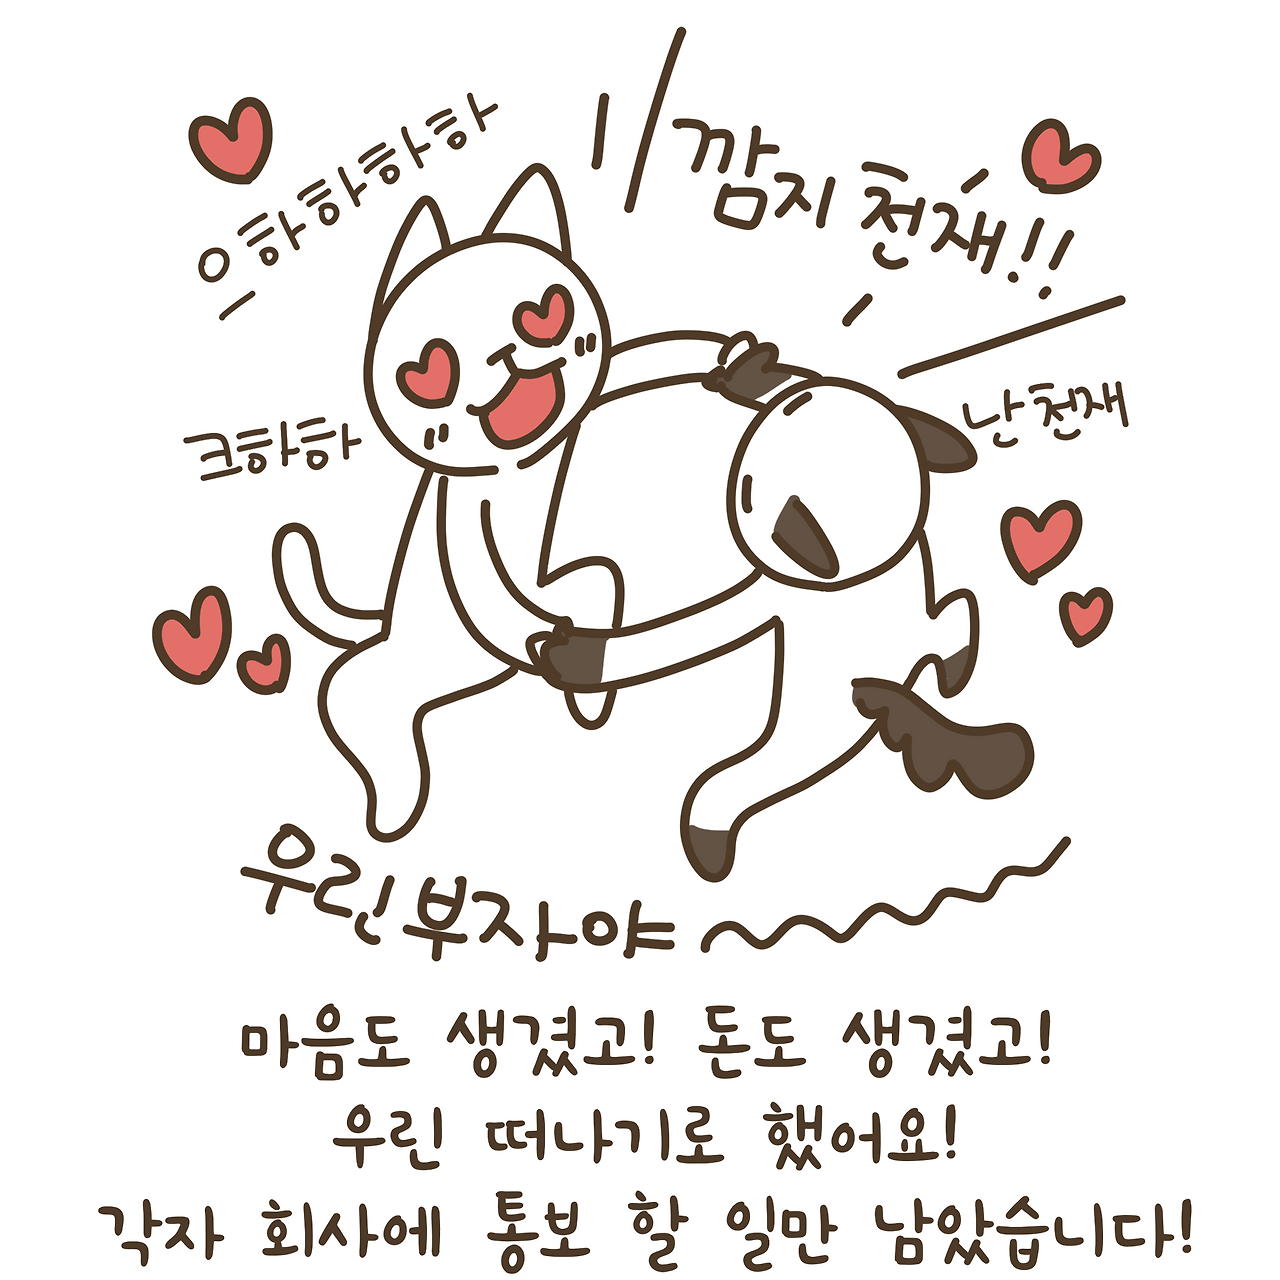 으하하하하
깜지 천재!!
크하하
난 천재
우린 부자야
마음도 생겼고! 돈도 생겼고!
우린 떠나기로 했어요!
각자 회사에 통보 할 일만 남았습니다!